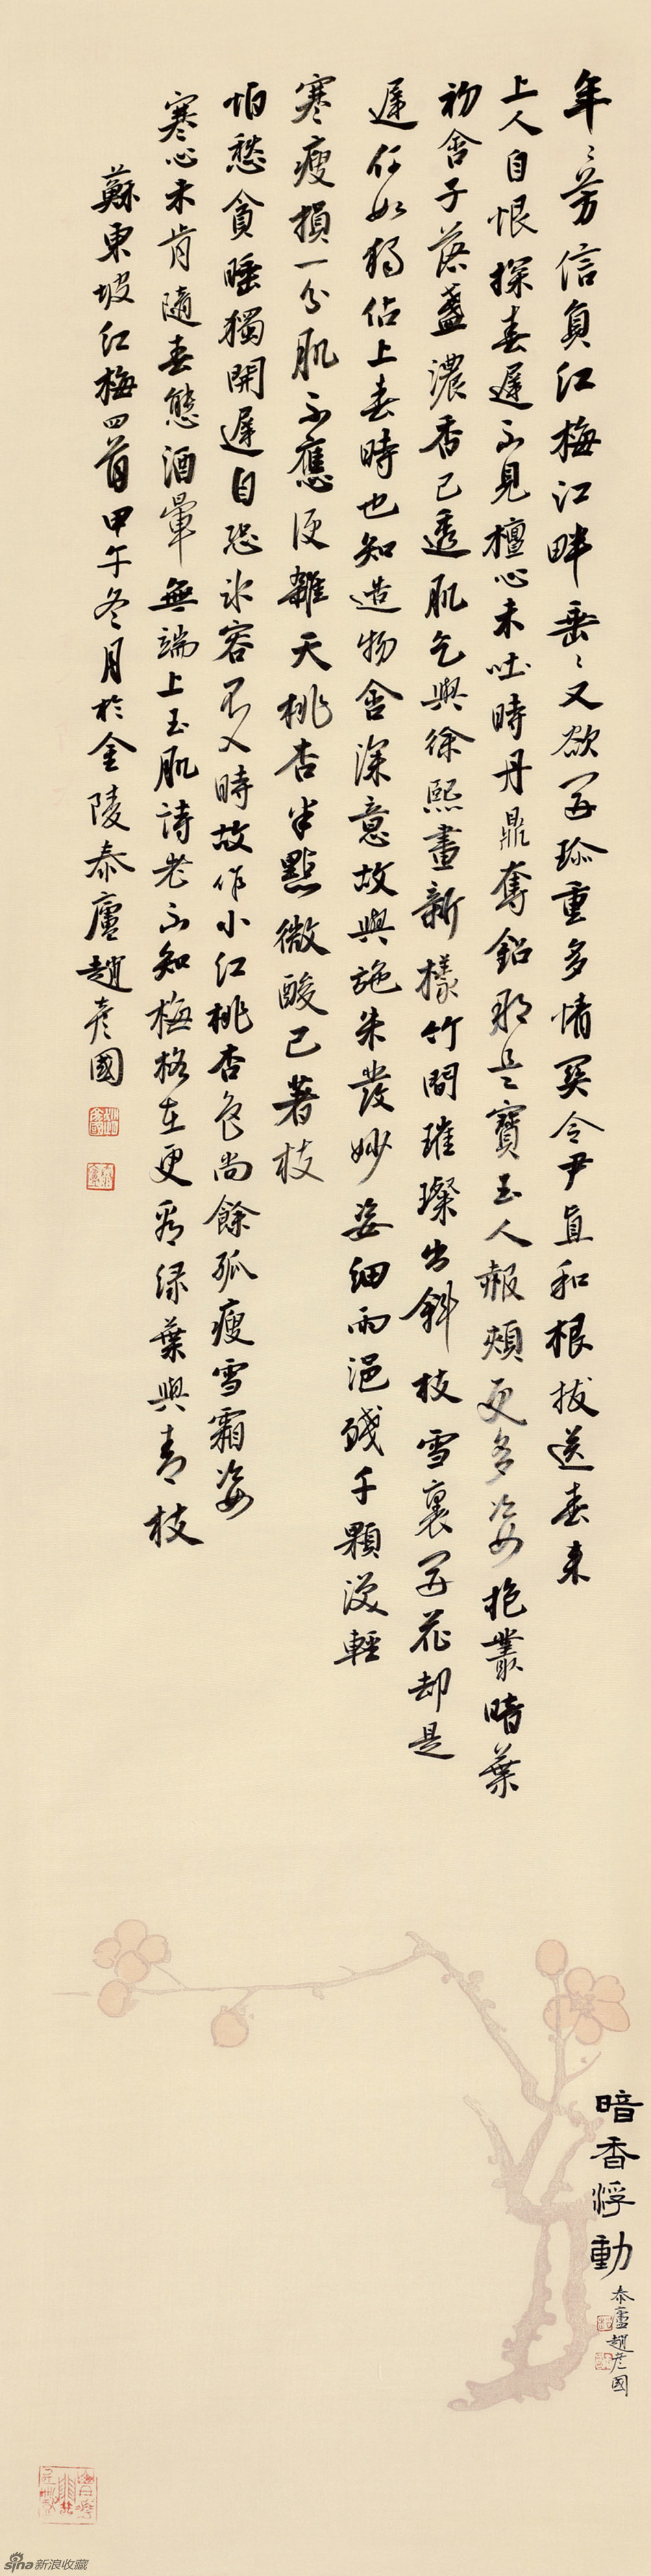 年〻芳信負红梅江畔垂〻又欲開珍重多情関令尹直和根拔送春来
上人自恨探春遲不見檀心未吐時丹鼎奪鉛那是寶玉人赧頰更多姿抱叢暗葉
初含子落盞濃香已透肌乞與徐熙畫新樣竹間璀璨出斜枝雪裏開花却是
遲何如獨佔上春時也知造物含深意故與施朱發妙姿細雨浥殘千顆淚輕
寒瘦損一分肌不應便雜夭桃杏半點微酸已著枝
怕愁貪睡獨開遲自恐冰容不入時故作小红桃杏色尚餘孤瘦雪霜姿
寒心未肯隨春態酒暈無端上玉肌詩老不知梅格在更看绿葉與青枝
蘇東坡红梅四首甲午冬月於金陵泰廬趙彦國
暗香浮動
泰廬趙彦國
sina新浪收藏